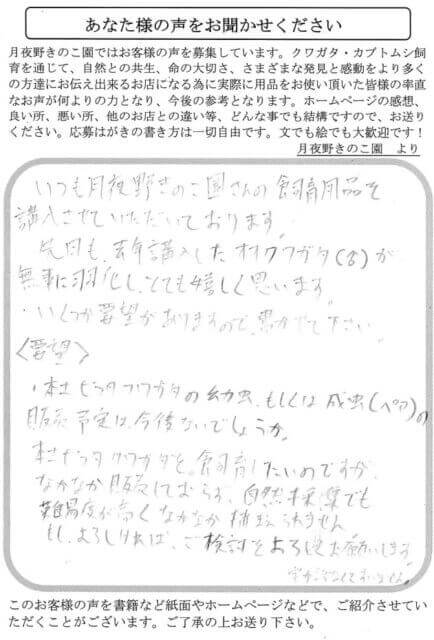 あなた様の声をお聞かせください
月夜野きのこ園ではお客様の声を募集しています。クワガタ・カブトムシ飼
育を通じて、自然との共生、命の大切さ、さまざまな発見と感動をより多く
の方達にお伝え出来るお店になる為に実際に用品をお使い頂いた皆様の率直
なお声が何よりの力となり、今後の参考となります。ホームページの感想、
良い所、悪い所、他のお店との違い等、どんな事でも結構ですので、お送り
ください。応募はがきの書き方は一切自由です。文でも絵でも大歓迎です！
月夜野きのこ園　より
いつも月夜野きのこ園さんの飼育用品を
購入させていただいております。
先日も、去年購入したオオクワガタ(♂)が
無事に羽化し、とても嬉しく思います。
いくつか要望がありますので、書かせて下さい。
〈要望〉
・本土ヒラタクワガタの幼虫、もしくは成虫(ペア)の
販売予定は、今後ないでしょうか。
本土ヒラタクワガタを飼育したいのですが、
なかなか販売しておらず、自然採集でも
難易度が高くなかなか捕まえられません
もし、よろしければ、ご検討をよろしくお願いします。
字がきたなくてすいません。
このお客様の声を書籍など紙面やホームページなどで、ご紹介させてい
ただくことがございます。ご了承の上お送り下さい。